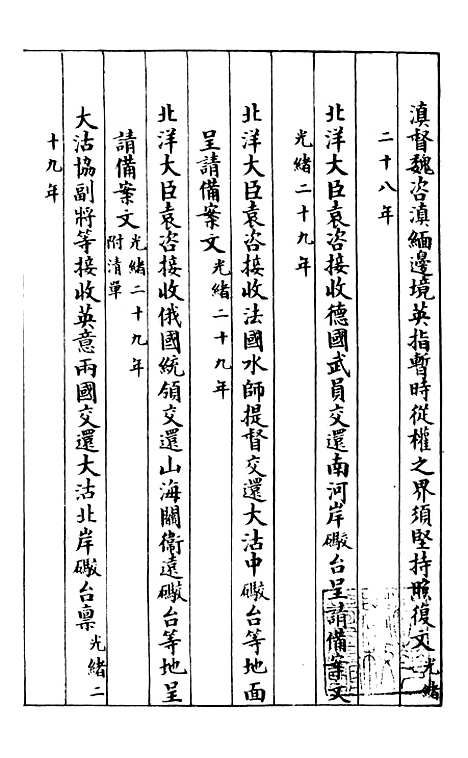 滇督魏咨滇緬邊境英指暫時從權之界須堅持照復文光緒
二十八年
北洋大臣袁咨接收德國武員交還南河岸礮台呈請備案文
光緒二十九年
北洋大臣袁咨接收法國水師提督交還大沽中礮台等地面
呈請備案文光緒二十九年
北洋大臣袁咨接收俄國統領交還山海關衞遠礮台等地呈
請備案文光緒二十九年附清單
大沽協副將等接收英意兩國交還大沽北岸礮台禀光緒二
十九年